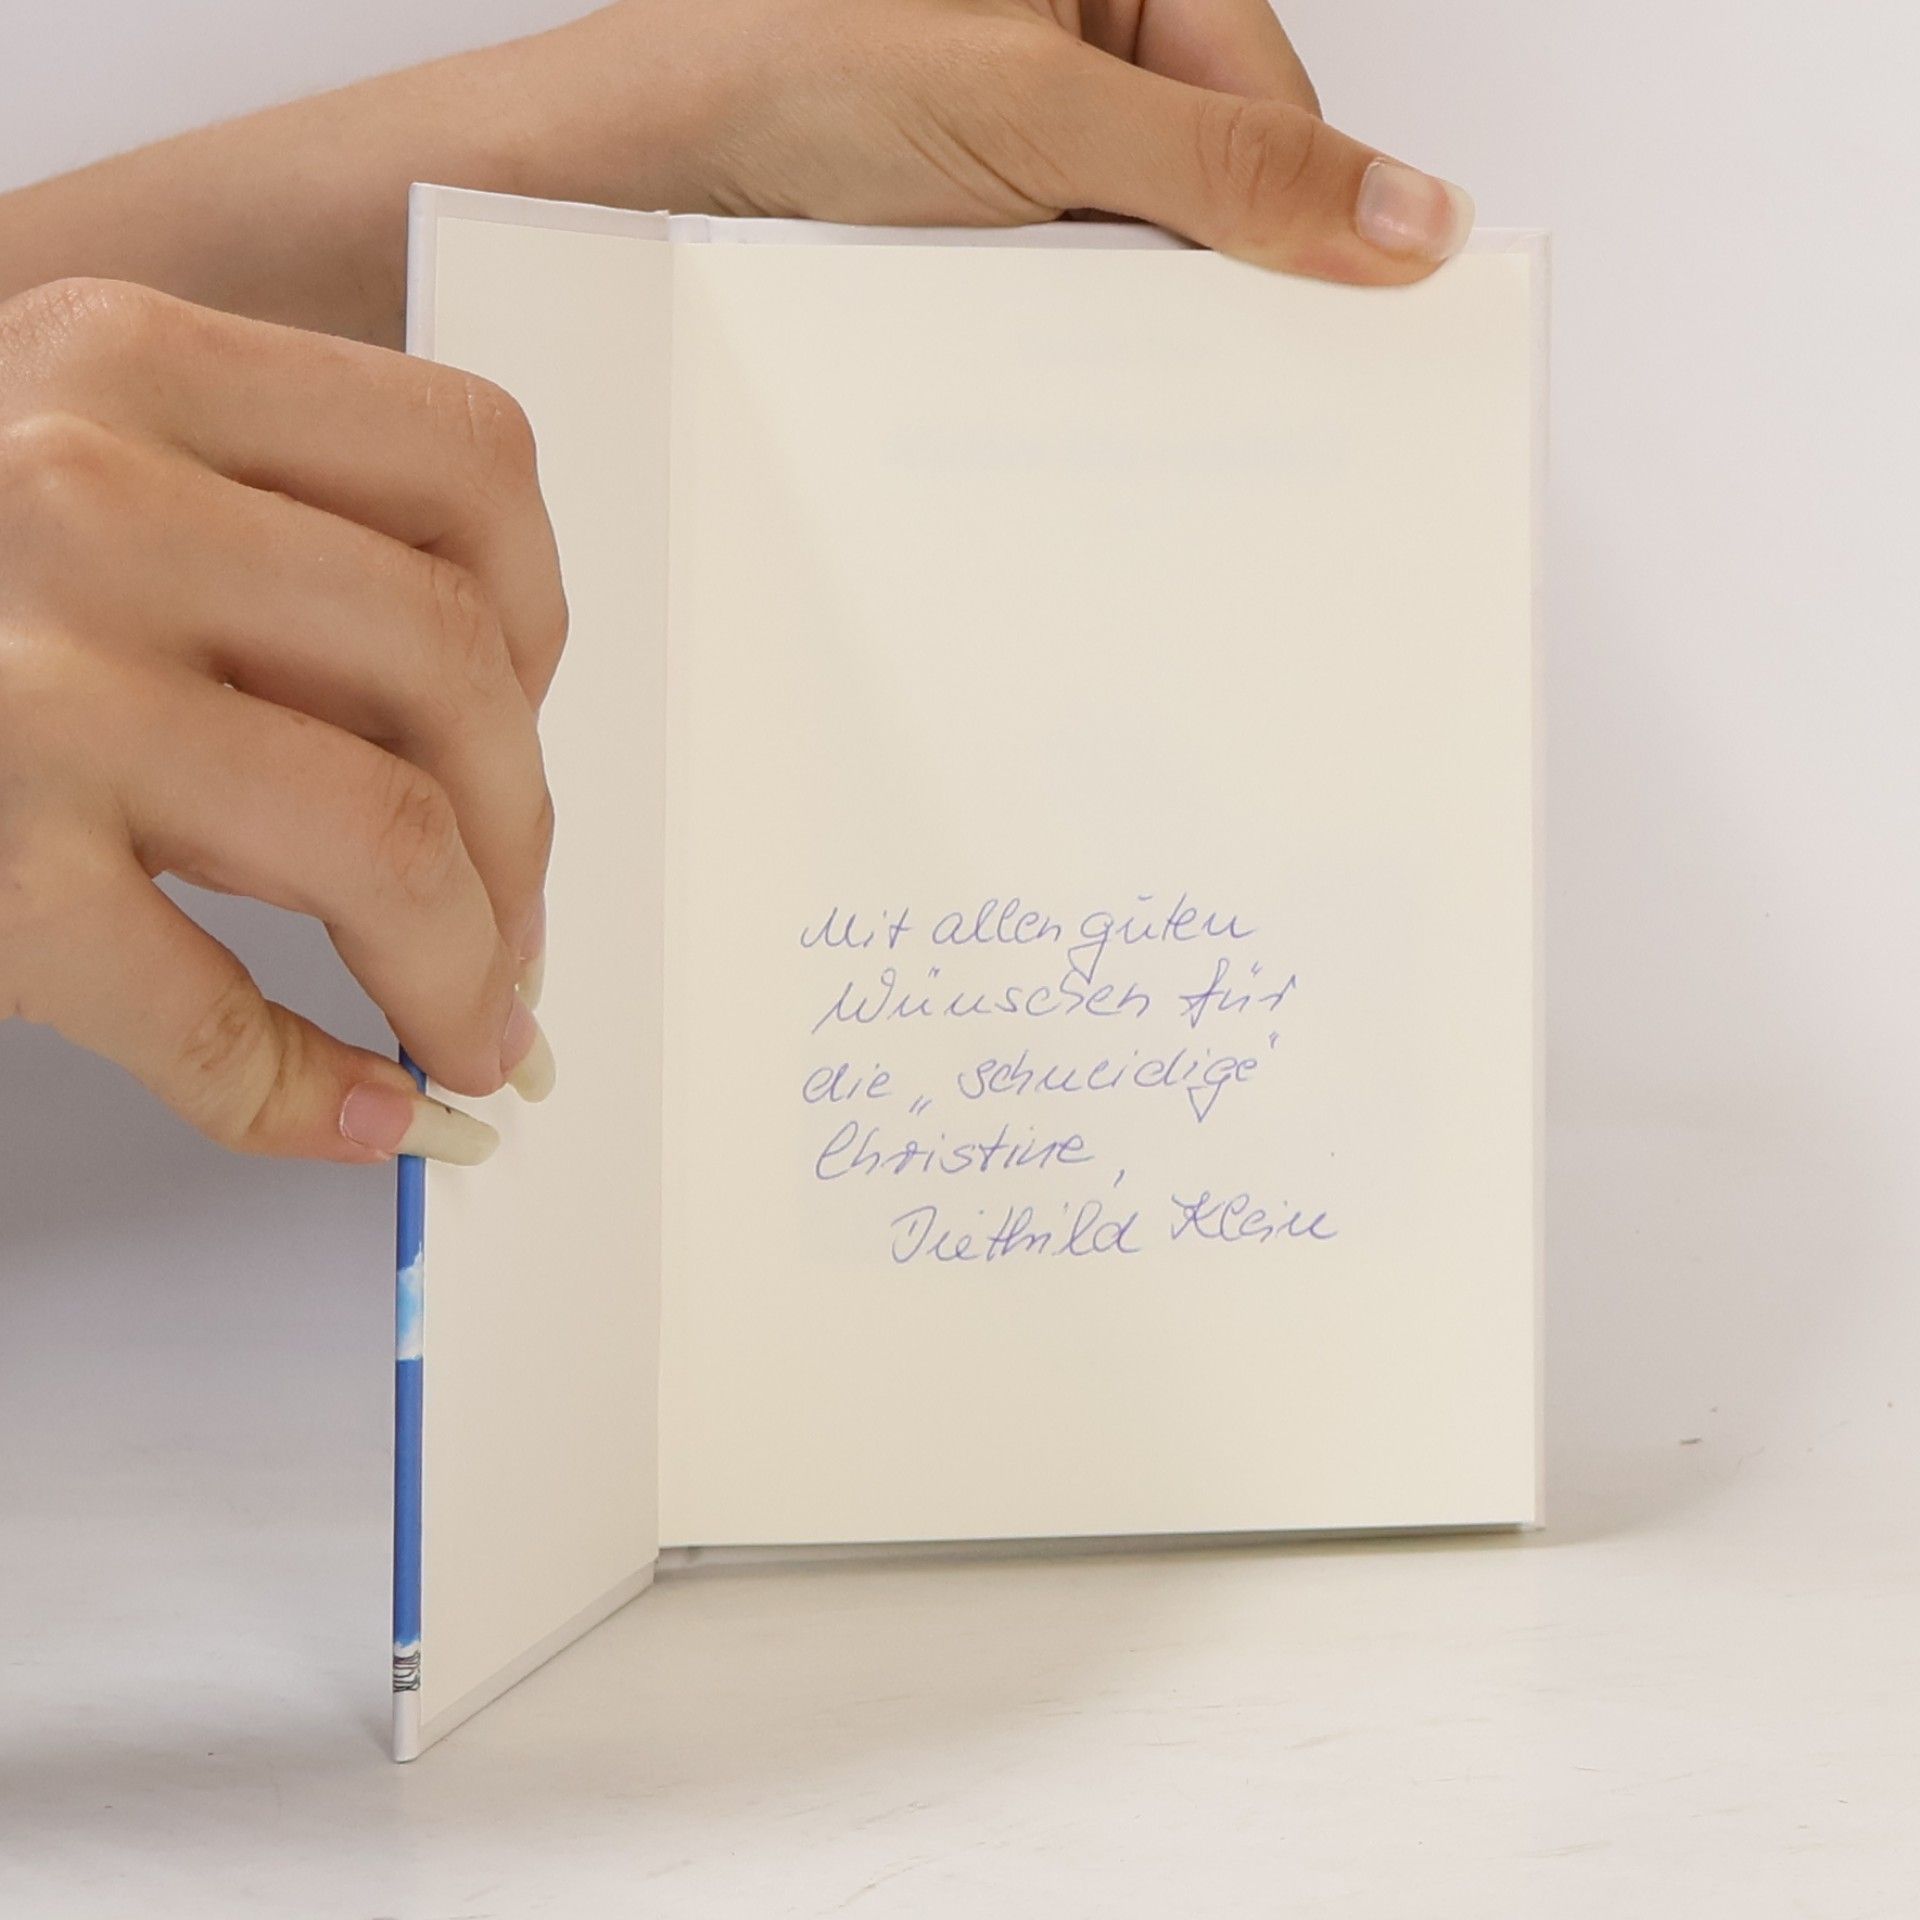 Mit allen guten
Wünschen für
die „schneidige"
Christine,
Diethild Klein